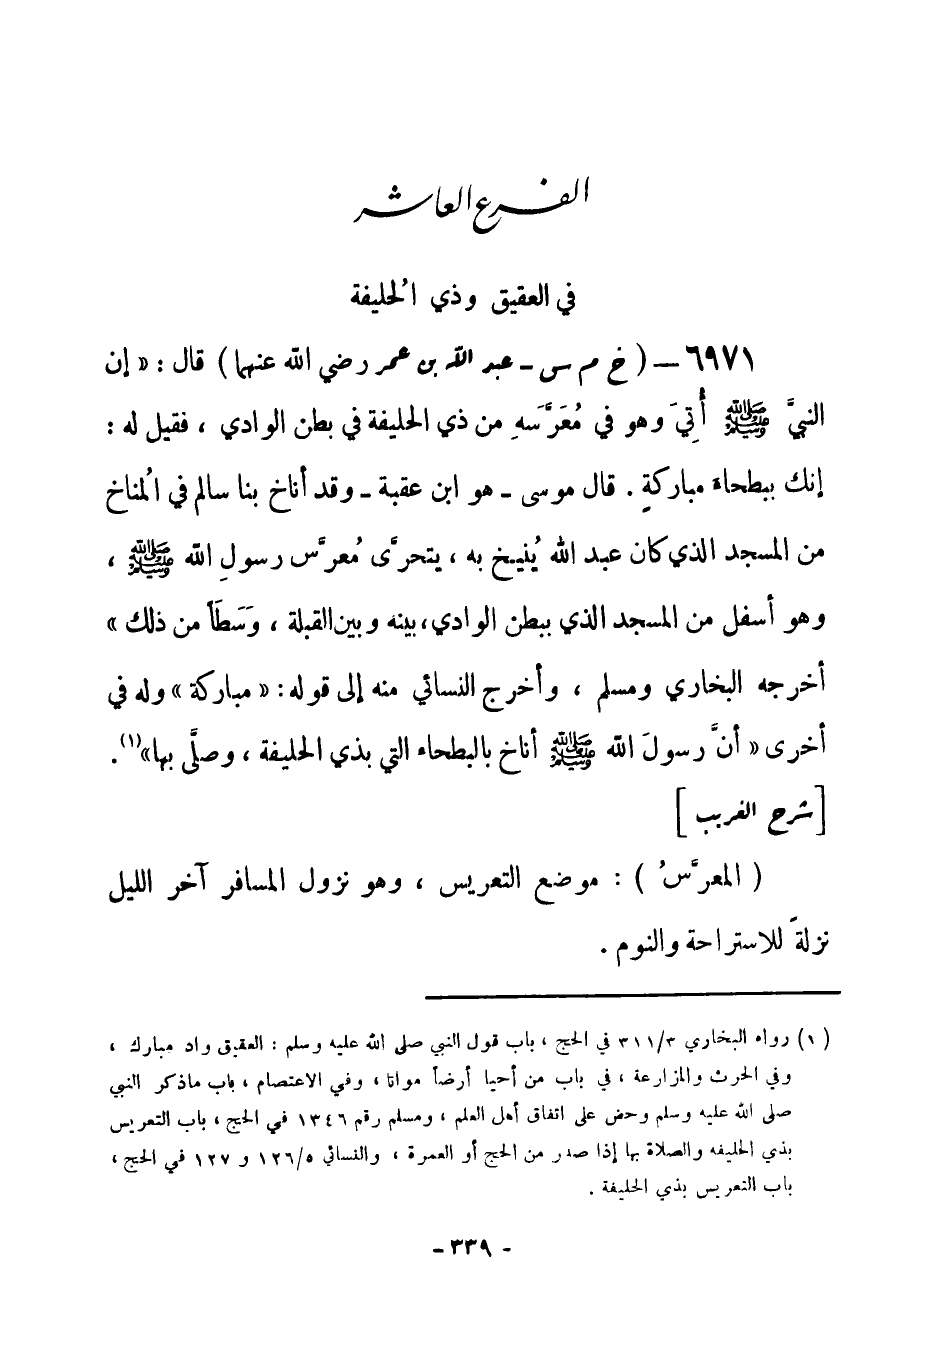 الفرع العاشر
في العقيق وذي الحُليفة
٦٩٧١ – ( خ م س - عبد الله بن عمر رضي الله عنهما ) قال : « إن
النبيَّ ﷺ أُتِيَ وهو في مُعَرَّسَهِ من ذي الحليفة في بطن الوادي ، فقيل له :
إنك ببطحاءَ مباركةٍ . قال موسى - هو ابن عقبة - وقد أناخ بنا سالم في المُناخ
من المسجد الذي كان عبد الله يُنيخ به ، يتحرَّى مُعرَّس رسولِ الله ﷺ ،
وهو أسفل من المسجد الذي ببطن الوادي، بينه وبين القبلة ، وَسَطاً من ذلك »
أخرجه البخاري ومسلم ، وأخرج النسائي منه إلى قوله : « مباركة » وله في
أخرى « أنَّ رسولَ الله ﷺ أناخ بالبطحاء التي بذي الحليفة ، وصلَّى بها»(١) .
[ شرح الغريب ]
( المعرَّسُ ) : موضع التعريس ، وهو نزول المسافر آخر الليل
نزلةً للاستراحة والنوم .
(١) رواه البخاري ٣١١/٣ في الحج ، باب قول النبي صلى الله عليه وسلم : العقيق واد مبارك ،
وفي الحرث والمزارعة ، في باب من أحيا أرضاً مواتا ، وفي الاعتصام ، باب ماذكر النبي
صلى الله عليه وسلم وحض على اتفاق أهل العلم ، ومسلم رقم ١٣٤٦ في الحج ، باب التعريس
بذي الحليفه والصلاة بها إذا صدر من الحج أو العمرة ، والنسائي ١٢٦/٥ و ١٢٧ في الحج ،
باب التعريس بذي الحليفة .
- ٣٣٩ -